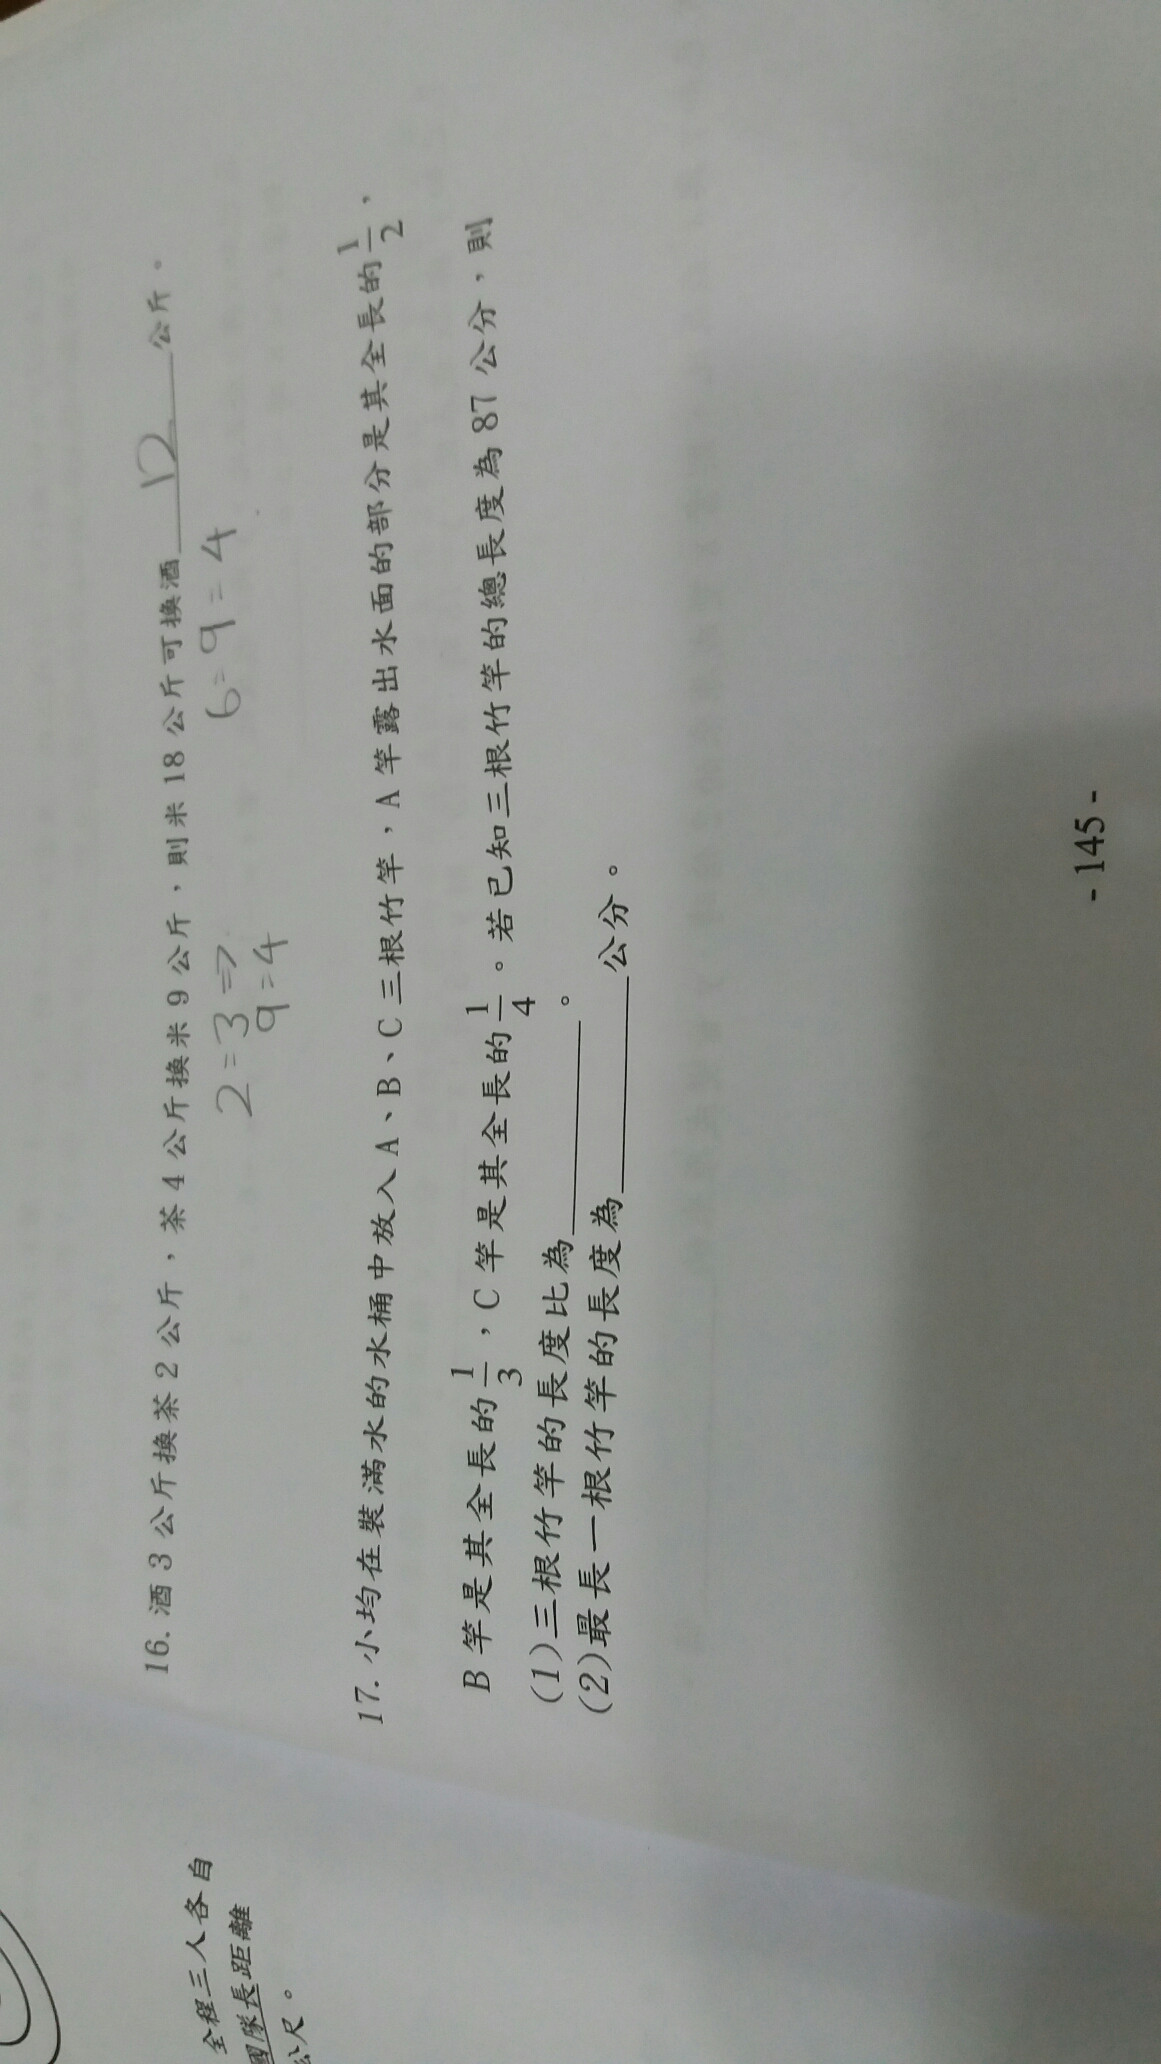 16. 酒 3 公斤換茶 2 公斤，茶 4 公斤換米 9 公斤，則米 18 公斤可換酒 12 公斤。
2=3⇒ 6=9=4
9=4
17. 小均在裝滿水的水桶中放入 A、B、C 三根竹竿，A 竿露出水面的部分是其全長的 1/2，
B 竿是其全長的 1/3，C 竿是其全長的 1/4。若已知三根竹竿的總長度為 87 公分，則
(1)三根竹竿的長度比為______。
(2)最長一根竹竿的長度為______公分。
- 145 -
全程三人各自
國隊長距離
公尺。